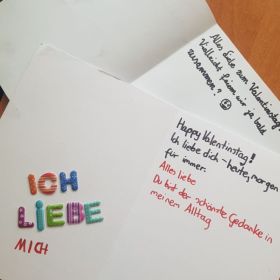 Alles Liebe zum Valentinstag
Vielleicht feiern wir ja bald
zusammen?
ICH
LiEBE
MICH
Happy Valentinstag!
Ich liebe dich – heute, morgen
für immer.
Alles liebe
Du bist der schönste Gedanke in
meinem Alltag